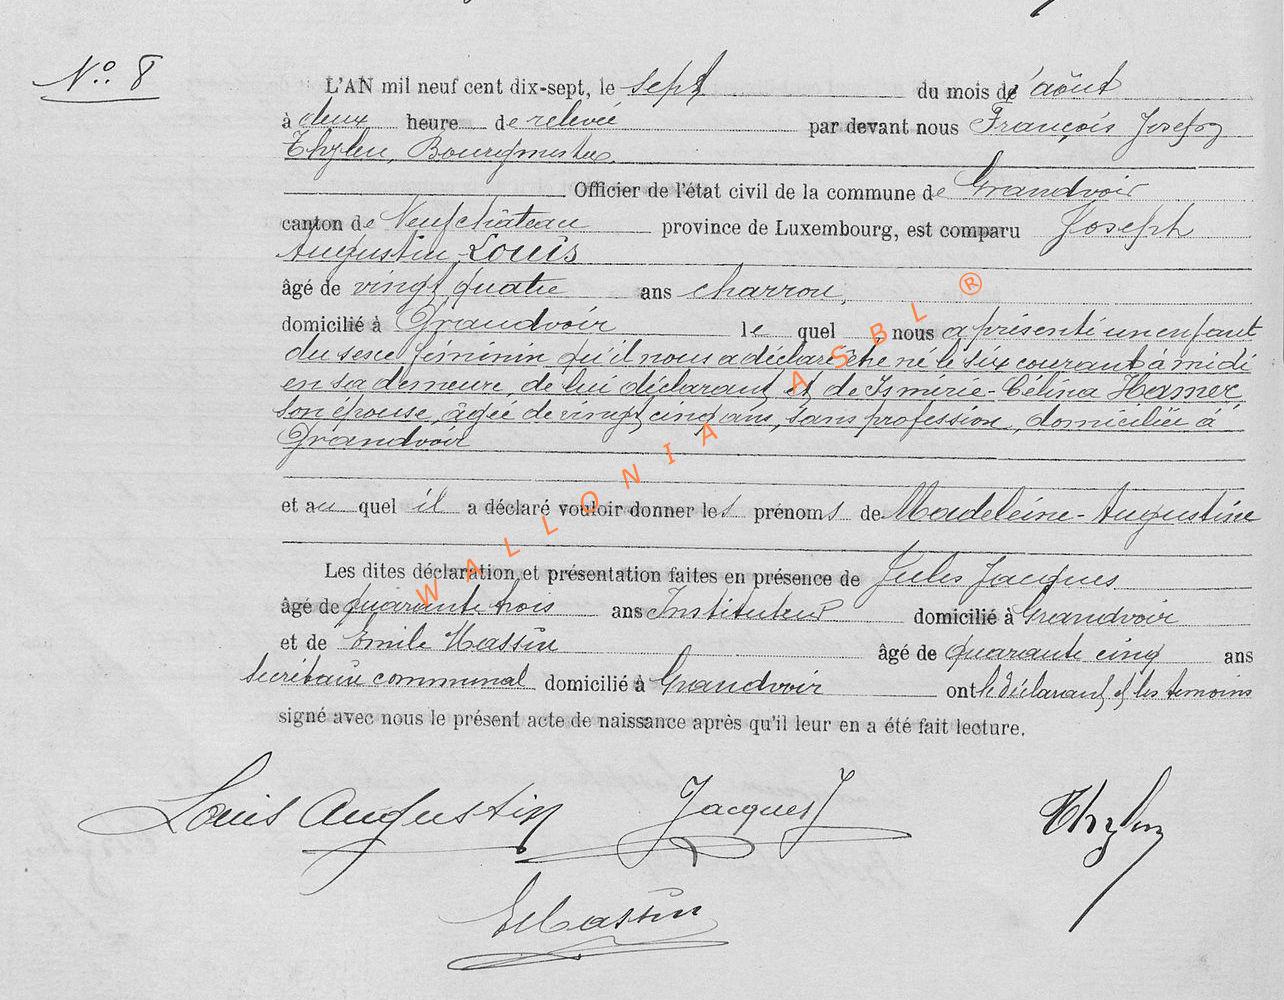 N°. 8
L'AN mil neuf cent dix-sept, le sept du mois d'août
à deux heure de relevée par devant nous François Joseph
Thylen, Bourgmestre,
Officier de l'état civil de la commune de Grandvoir
canton de Neufchâteau province de Luxembourg, est comparu Joseph
Augustin Louis
âgé de vingt quatre ans charron,
domicilié à Grandvoir le quel nous a présenté un enfant
du sexe féminin qu'il nous a déclaré être né le six courant à midi
en sa demeure, de lui déclarant et de Ismérie-Célina Hamer
son épouse, âgée de vingt cinq ans, sans profession, domiciliée à
Grandvoir
et au quel il a déclaré vouloir donner les prénoms de Madeleine-Augustine
Les dites déclaration et présentation faites en présence de Jules Jacques
âgé de quarante trois ans Instituteur domicilié à Grandvoir
et de Emile Massin âgé de quarante cinq ans
secrétaire communal domicilié à Grandvoir ont le déclarant et les témoins
signé avec nous le présent acte de naissance après qu'il leur en a été fait lecture.
Louis Augustin Jacques J Thylen
E Massin
WALLONIA ASBL ®